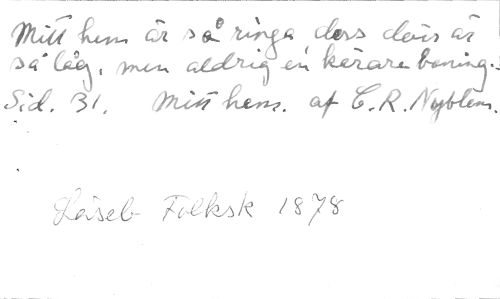 Mitt hem är så ringa dess dörr är
så låg, men aldrig en kärare boning.
Sid. 31. Mitt hem. af C. R. Nyblom.
Läseb Folksk 1878